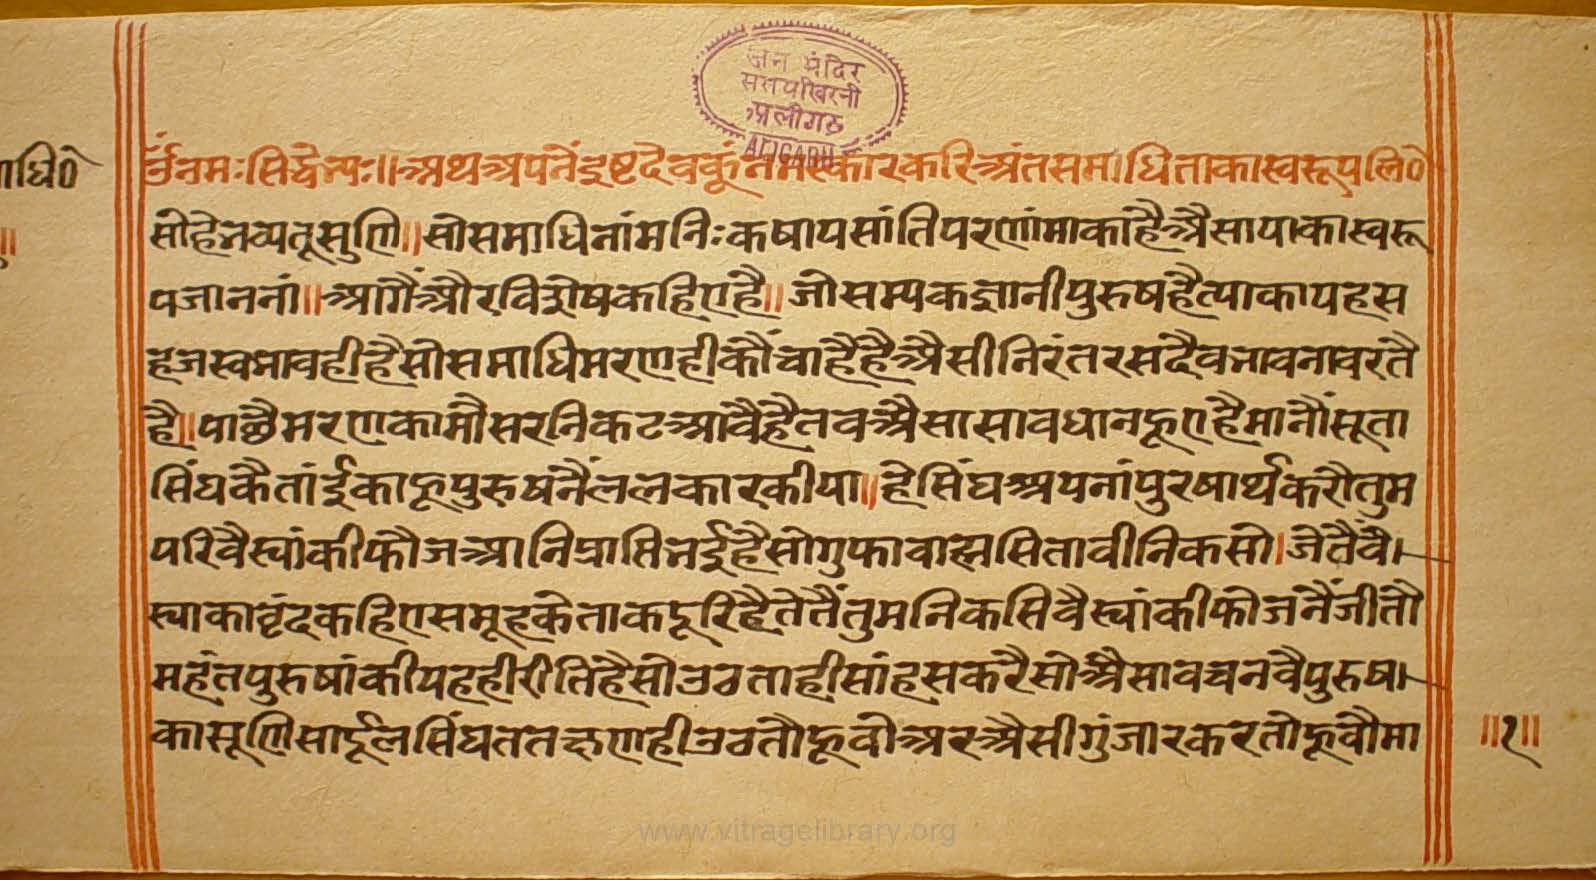 जैन मंदिर
सरायखिरनी
अलीगढ़
ALIGARH
ाधि०
॥
ॐनमःसिद्धेभ्यः॥अथअपनेंइष्टदेवकूंनमस्कारकरिअंतसमाधिताकास्वरूपलि०
सोहेभव्यतूसुणि॥सोसमाधिनांमनिःकषायसांतिपरणांमाकाहैअैसायाकास्वरू
पजाननां॥आगैंऔरविशेषकहिएहै॥जोसम्यकज्ञानीपुरुषहैत्याकायहस
हजस्वभावहीहैसोसमाधिमरणहीकौंचाहैहैअैसीनिरंतरसदैवभावनावरतै
है॥पाछैमरणकामौसरनिकटआवैहैतबअैसासावधानहूएहैमानौंसूता
सिंघकैतांईकाहूपुरुषनैंललकारकीया॥हेसिंघअपनांपुरषार्थकरौतुम
परिवैस्यांकीफौजआनिप्राप्तिभईहैसोगुफाबाह्यसिताबीनिकसो।जेतैंवै।
स्याकावृंदकहिएसमूहकेताकदूरिहैतेतैंतुमनिकसिवैस्यांकीफोजनैंजीतौ
महंतपुरुषांकीयहहीरीतिहैसोउठताहीसांहसकरैसोअैसावचनवैपुरुष।
कासूणिसार्दूलसिंघततक्षणहीउठतौहूवोअरअैसीगुंजारकरतोहूवौमा
॥१॥
www.vitragelibrary.org